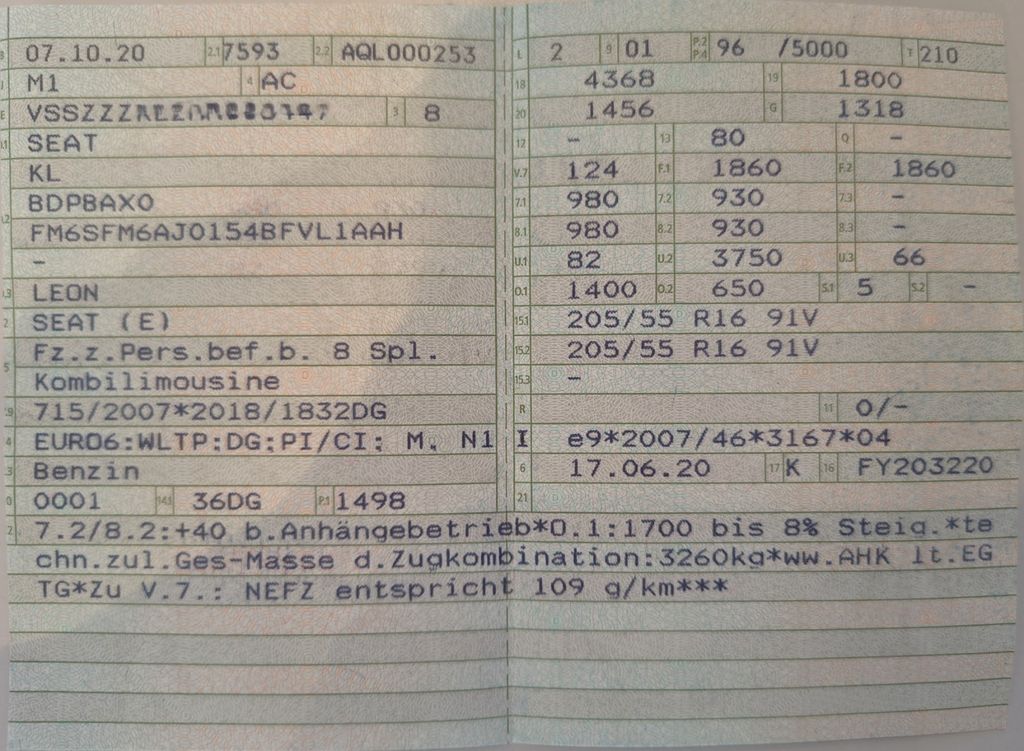 B 07.10.20 2.1 7593 2.2 AQL000253
J M1 4 AC
E 3 8
SEAT
KL
BDPBAX0
FM6SFM6AJ0154BFVL1AAH
-
LEON
2 SEAT (E)
5 Fz.z.Pers.bef.b. 8 Spl.
Kombilimousine
715/2007*2018/1832DG
EURO6:WLTP:DG:PI/CI: M, N1
Benzin
0001 14.1 36DG P.1 1498
L 2 9 01 P.2 P.4 96 /5000 T 210
18 4368 19 1800
20 1456 G 1318
12 - 13 80 Q -
V.7 124 F.1 1860 F.2 1860
7.1 980 7.2 930 7.3 -
8.1 980 8.2 930 8.3 -
U.1 82 U.2 3750 U.3 66
O.1 1400 O.2 650 S.1 5 S.2 -
15.1 205/55 R16 91V
15.2 205/55 R16 91V
15.3 -
R 11 0/-
I e9*2007/46*3167*04
6 17.06.20 17 K 16 FY203220
21
7.2/8.2:+40 b.Anhängebetrieb*O.1:1700 bis 8% Steig.*te
chn.zul.Ges-Masse d.Zugkombination:3260kg*ww.AHK lt.EG
TG*Zu V.7.: NEFZ entspricht 109 g/km***